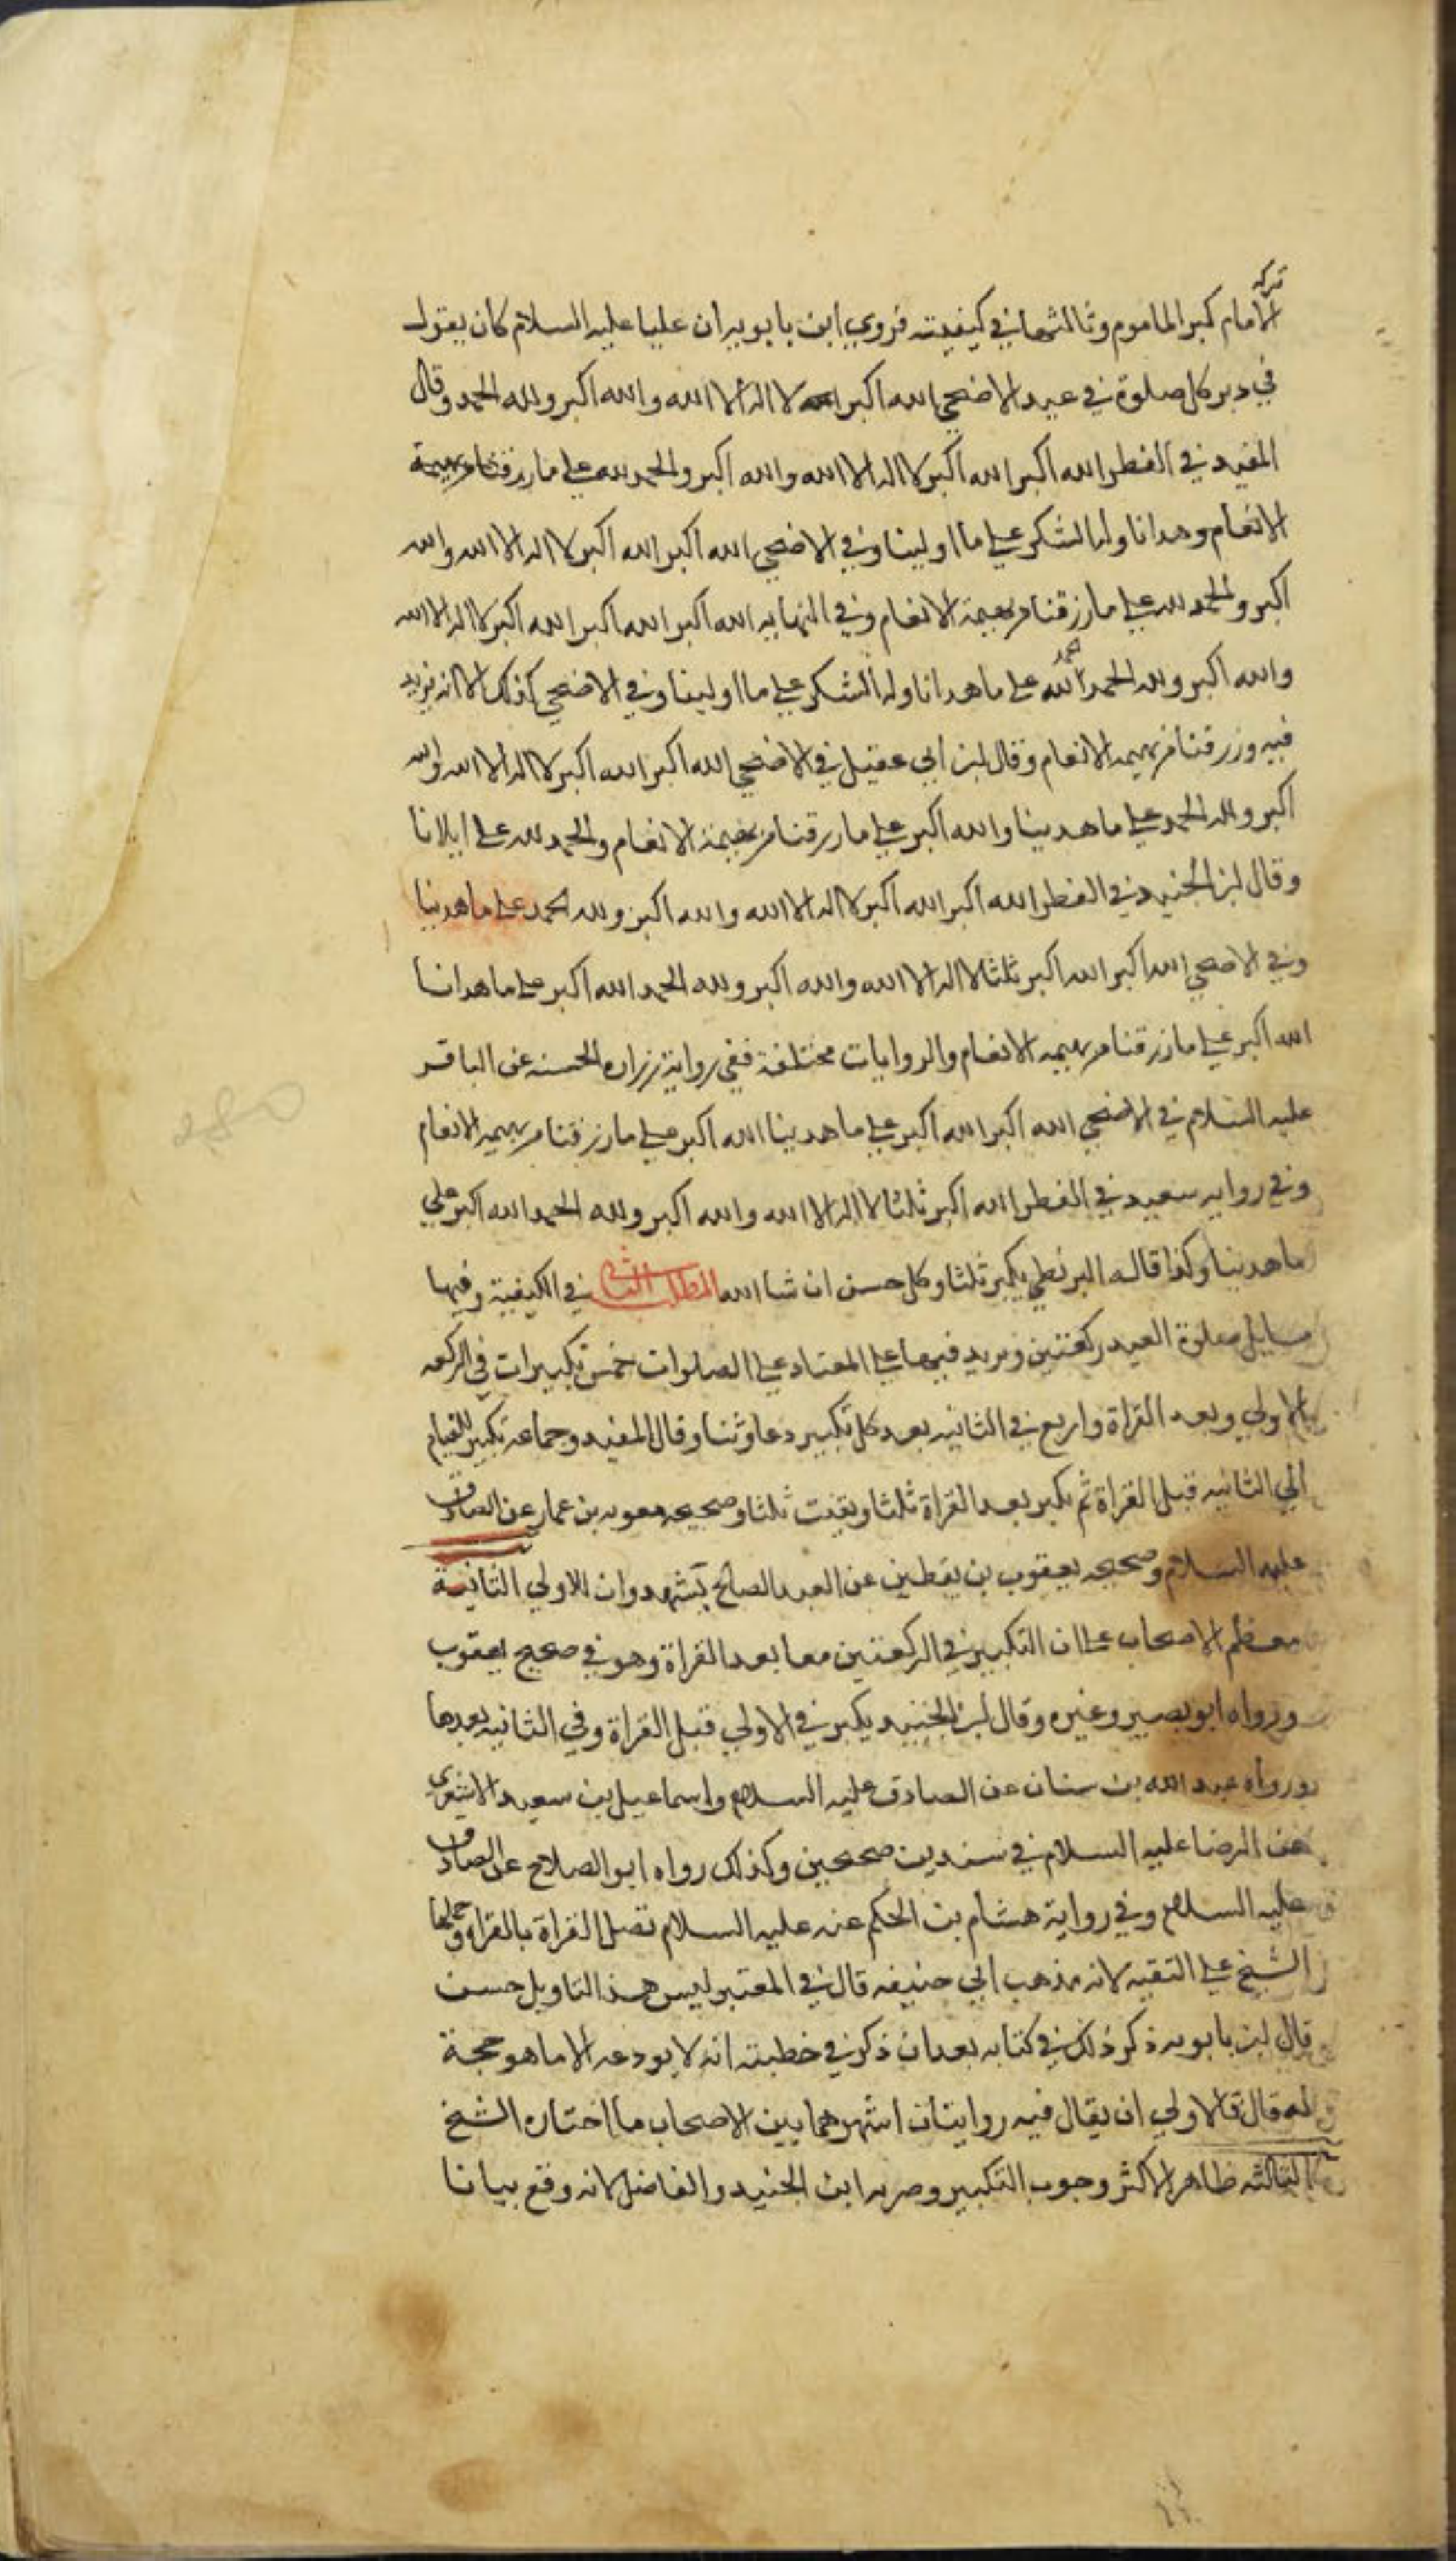 تركه
الامام كبر الماموم وثالثها في كيفيته فروي ابن بابويه ان عليا عليه السلام كان يقول
في دبر كل صلوة في عيد الاضحي الله اكبر الله اكبر لا اله الا الله والله اكبر ولله الحمد وقال
المفيد في الفطر الله اكبر الله اكبر لا اله الا الله والله اكبر والحمد لله علي ما رزقنا من بهيمة
الانعام وهدانا وله الشكر علي ما اولينا وفي الاضحي الله اكبر الله اكبر لا اله الا الله والله
اكبر والحمد لله علي ما رزقنا من بهيمة الانعام وفي النهايه الله اكبر الله اكبر الله اكبر لا اله الا الله
والله اكبر ولله الحمد الحمد لله علي ما هدانا وله الشكر علي ما اولينا وفي الاضحي كذلك الا انه يزيد
فيه ورزقنا من بهيمه الانعام وقال ابن ابي عقيل في الاضحي الله اكبر الله اكبر لا اله الا الله والله
اكبر ولله الحمد علي ما هدينا والله اكبر علي ما رزقنا من بهيمة الانعام والحمد لله علي ابلانا
وقال ابن الجنيد في الفطر الله اكبر الله اكبر لا اله الا الله والله اكبر ولله الحمد علي ما هدينا
وفي الاضحي الله اكبر الله اكبر ثلثا لا اله الا الله والله اكبر ولله الحمد الله اكبر علي ما هدانا
الله اكبر علي ما رزقنا من بهيمه الانعام والروايات مختلفة ففي رواية زراره الحسنه عن الباقر
عليه السلام في الاضحي الله اكبر الله اكبر علي ما هدينا الله اكبر علي ما رزقنا من بهيمه الانعام
وفي روايه سعيد في الفطر الله اكبر ثلثا لا اله الا الله والله اكبر ولله الحمد الله اكبر علي
ما هدينا وكذا قاله البزنطي يكبر ثلثا وكل حسن ان شا الله المطلب الثاني في الكيفية وفيها
مسايل صلوة العيد ركعتين ويزيد فيهما علي المعتاد علي الصلوات خمس تكبيرات في الركعه
الاولي وبعد القراة واربع في الثانيه بعد كل تكبير دعا وثنا وقال المفيد وجماعه تكبير للقيام
الي الثانيه قبل القراة ثم يكبر بعد القراة ثلثا ويقنت ثلثا وصحيحه معويه بن عمار عن الصادق
عليه السلام وصحيحه يعقوب بن يقطين عن العبد الصالح يشهدوان للاولي الثانية
معظم الاصحاب علي ان التكبير في الركعتين معا بعد القراة وهو في صحيح يعقوب
ورواه ابو بصير وغيره وقال ابن الجنيد يكبر في الاولي قبل القراة وفي الثانيه بعدها
ورواه عبد الله بن سنان عن الصادق عليه السلام واسماعيل بن سعيد الاشعري
عن الرضا عليه السلام في سندين صحيحين وكذلك رواه ابو الصلاح عن الصادق
عليه السلام وفي رواية هشام بن الحكم عنه عليه السلام تصل القراة بالقراه وحملها
الشيخ علي التقيه لانه مذهب ابي حنيفه قال في المعتبر ليس هذا التاويل حسن
قال ابن بابويه ذكر ذلك في كتابه بعد ان ذكر في خطبته انه لا يودعه الا ما هو حجة
له قال فالاولي ان يقال فيه روايتان اشهرهما بين الاصحاب ما اختاره الشيخ
الثالثه ظاهر الاكثر وجوب التكبير وصر به ابن الجنيد والفاضل لانه وقع بيانا